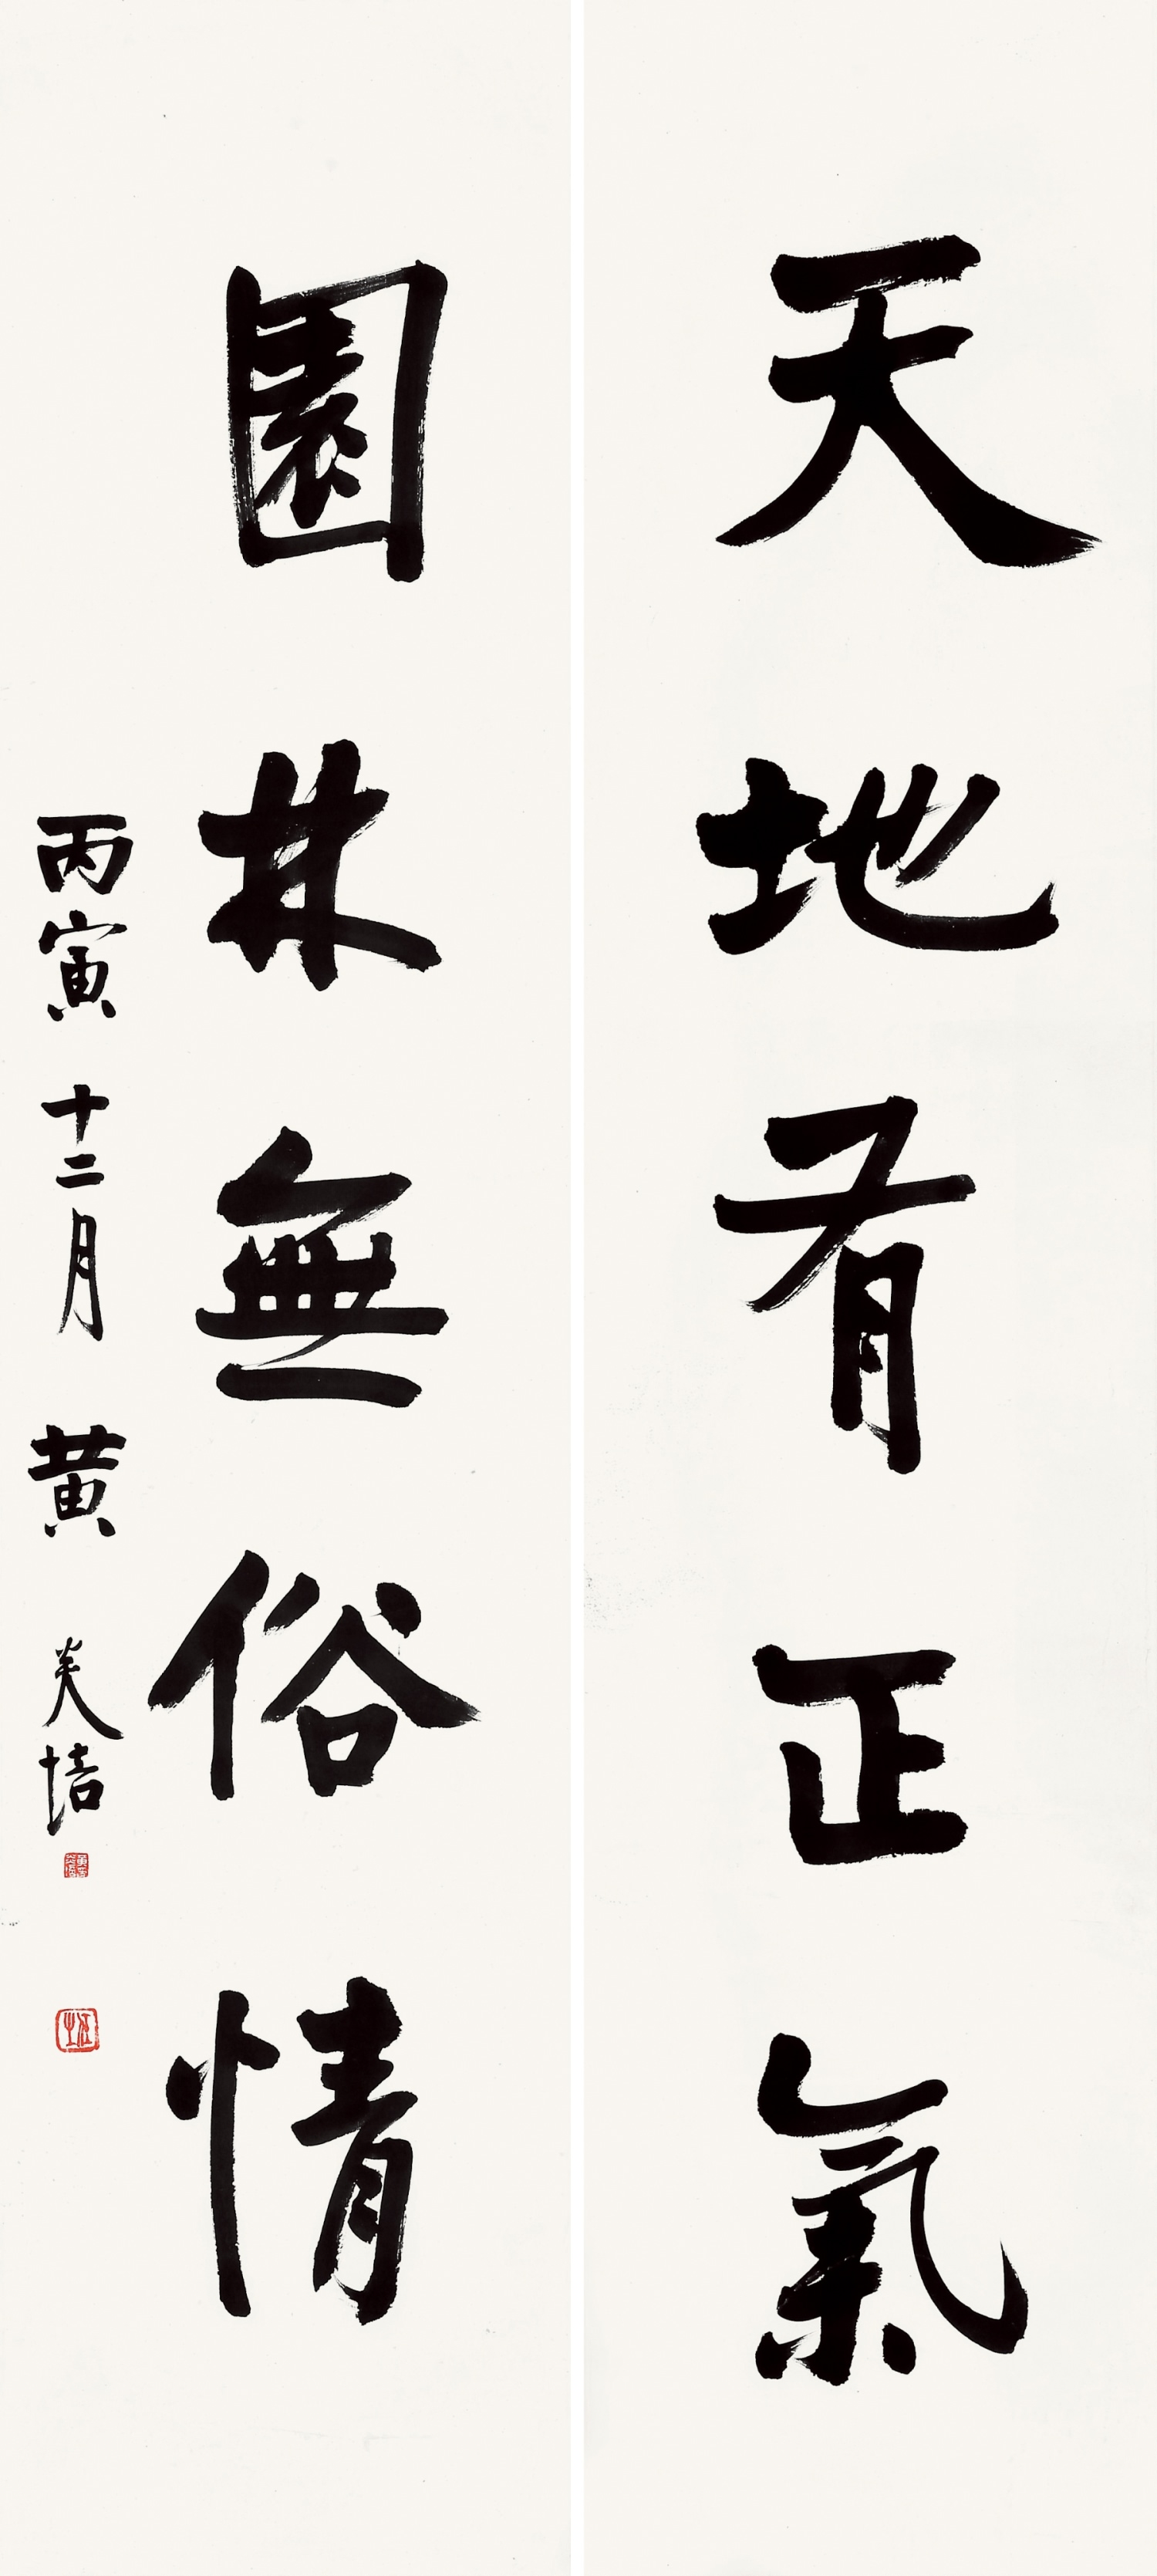 天地有正氣
園林無俗情
丙寅十二月 黄美培